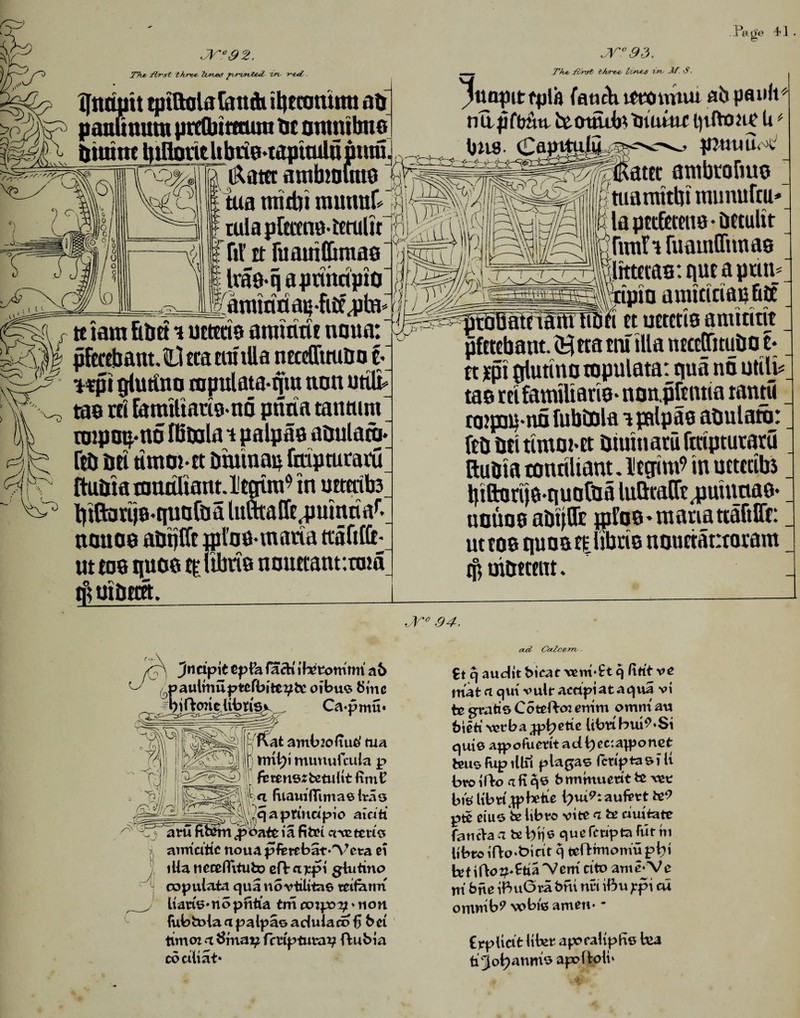 Page 41.
Nº 92.
The first three lines printed in red.
Incipit epistola sancti iheronimi ad
paulinum presbiterum de omnibus
diuine historie libris·capitulū primū.
Frater ambrosius
tua michi munus⸗
cula pferens·detulit
sil' et suauissimas
lrās·q̄ a principio
amiciciaꝝ·fidē ꝓba⸗
te iam fidei ⁊ ueteris amicicie noua:
pferebant. Uera em̄ illa necessitudo ē·
⁊ xp̄i glutino copulata·q̄m non utili⸗
tas rei familiaris·nō pn̄cia tantum
corpoꝝ·nō sbdola ⁊ palpās adulaco·
sed dei timor·et diuinaꝝ scripturarū
studia conciliant. Legim⁹ in ueterib3
historijs·quosdā lustrasse ꝓuincias·
nouos adijsse ppl'os·maria trāsisse·
ut eos quos ex libris nouerant: corā
qꝫ uiderēt.
Nº 93.
The first three lines in M S.
Incipit epl'a sancti ieronimi ad pauli⸗
nū p̄sbr̄m de omībus diuine historie li⸗
bris. Capitulū primum
Frater ambrosius
tua mithi munuscu⸗
la perferens·detulit
siml' ⁊ suauissimas
litteras: que a prin⸗
cipio amiciciaꝝ fidē
probate iam fidei et ueteris amicitie
pferebant. Uera em̄ illa necessitudo ē·
et xp̄i glutino copulata: quā nō utili⸗
tas rei familiaris·non p̄sentia tantū
corpoꝝ·nō subdola ⁊ palpās adulatō:
sed dei timor·et diuinarū scripturarū
studia conciliant. Legim⁹ in ueterib3
historijs·quosdā lustrasse ꝓuincias·
nouos adijsse ppl'os·maria trāsisse:
ut eos quos ex libris nouerāt: coram
qꝫ uiderent.
Nº 94.
ad Calcem.
Incipit epl'a sācti iheronimi ad
paulinū presbiteꝝ de oībus diuine
historie libris. Ca·pmū·
Frat ambrosius' tua
mihi munuscula p
ferens: detulit siml'
⁊ suauissimas lrās
q̄ a principio aiciti
arū fidem ꝓbate iā fidei ⁊ veteris
amicitie noua pferebāt·Vera eī
illa necessitudo est ⁊ xp̄i glutino
copulata quā nō vtilitas rei famī
liaris·nō pn̄tia tm̄ corpoꝝ·non
subdola ⁊ palpās adulacō ſꝫ dei
timor ⁊ diuinaꝝ scripturaꝝ studia
cōciliāt·
Et q̄ audit dicat veni·Et q̄ sitit ve
niat ⁊ qui vult accipiat aquā vi
te gratis Cōtestor enim omni au
diēti verba ꝓphetie libri hui⁹·Si
quis apposuerit ad hec: apponet
deus sup illū plagas scriptas ī li
bro isto ⁊ si q̄s diminuerit de ver
bis libri ꝓphetie hui⁹: aufert de⁹
ptē eius de libro vite ⁊ de ciuitate
sancta ⁊ de hijs que scripta sūt in
libro isto·dicit q̄ testimoniū phi
bet istoꝝ·Etiā Veni cito amē·Ve
ni dn̄e ihu Grā dn̄i nr̄i ihu xp̄i cū
omnib⁹ vobis amen·
Explicit liber apocalipsis bea
ti Johannis apostoli·